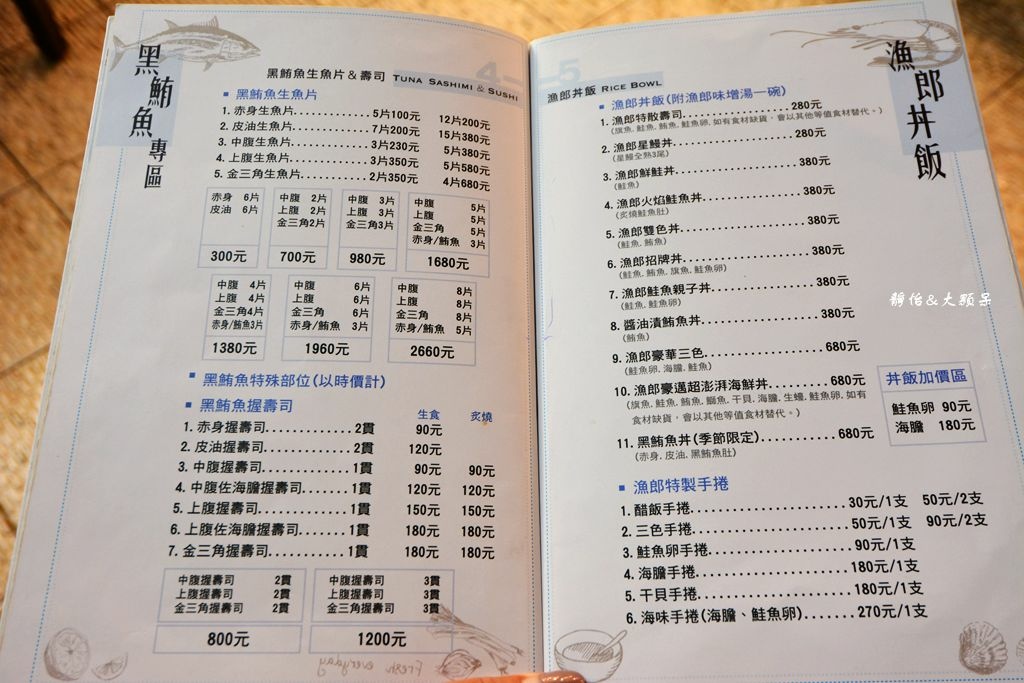 黑鮪魚專區
黑鮪魚生魚片&壽司 TUNA SASHIMI & SUSHI
4—5
▪ 黑鮪魚生魚片
1. 赤身生魚片...............5片100元 12片200元
2. 皮油生魚片...............7片200元 15片380元
3. 中腹生魚片...............3片230元 5片380元
4. 上腹生魚片...............3片350元 5片580元
5. 金三角生魚片............2片350元 4片680元
赤身 6片
皮油 6片
300元
中腹 2片
上腹 2片
金三角2片
700元
中腹 3片
上腹 3片
金三角3片
980元
中腹 5片
上腹 5片
金三角 5片
赤身/鮪魚 3片
1680元
中腹 4片
上腹 4片
金三角4片
赤身/鮪魚3片
1380元
中腹 6片
上腹 6片
金三角 6片
赤身/鮪魚 3片
1960元
中腹 8片
上腹 8片
金三角 8片
赤身/鮪魚 5片
2660元
▪ 黑鮪魚特殊部位(以時價計)
▪ 黑鮪魚握壽司
生食 炙燒
1. 赤身握壽司............2貫 90元
2. 皮油握壽司............2貫 120元
3. 中腹握壽司............1貫 90元 90元
4. 中腹佐海膽握壽司.......1貫 120元 120元
5. 上腹握壽司............1貫 150元 150元
6. 上腹佐海膽握壽司.......1貫 180元 180元
7. 金三角握壽司..........1貫 180元 180元
中腹握壽司 2貫
上腹握壽司 2貫
金三角握壽司 2貫
800元
中腹握壽司 3貫
上腹握壽司 3貫
金三角握壽司 3貫
1200元
Fresh everyday
漁郎丼飯
漁郎丼飯 RICE BOWL
▪ 漁郎丼飯(附漁郎味增湯一碗)
1. 漁郎特散壽司...............280元
(旗魚. 鮭魚. 鮪魚. 鮭魚卵. 如有食材缺貨，會以其他等值食材替代。)
2. 漁郎星鰻丼.................280元
(星鰻全熟3尾)
3. 漁郎鮮鮭丼.................380元
(鮭魚)
4. 漁郎火焰鮭魚丼..............380元
(炙燒鮭魚肚)
5. 漁郎雙色丼.................380元
(鮭魚. 鮪魚)
6. 漁郎招牌丼.................380元
(鮭魚. 鮪魚. 旗魚. 鮭魚卵)
7. 漁郎鮭魚親子丼..............380元
(鮭魚. 鮭魚卵)
8. 醬油漬鮪魚丼................380元
(鮪魚)
9. 漁郎豪華三色................680元
(鮭魚卵. 海膽. 鮭魚)
10. 漁郎豪邁超澎湃海鮮丼.........680元
(旗魚. 鮭魚. 鮪魚. 鰤魚. 干貝. 海膽. 生蠔. 鮭魚卵. 如有
食材缺貨，會以其他等值食材替代。)
11. 黑鮪魚丼(季節限定)...........680元
(赤身. 皮油. 黑鮪魚肚)
丼飯加價區
鮭魚卵 90元
海膽 180元
▪ 漁郎特製手捲
1. 醋飯手捲....................30元/1支 50元/2支
2. 三色手捲....................50元/1支 90元/2支
3. 鮭魚卵手捲..................90元/1支
4. 海膽手捲....................180元/1支
5. 干貝手捲....................180元/1支
6. 海味手捲(海膽、鮭魚卵).......270元/1支
靜怡&大顆呆